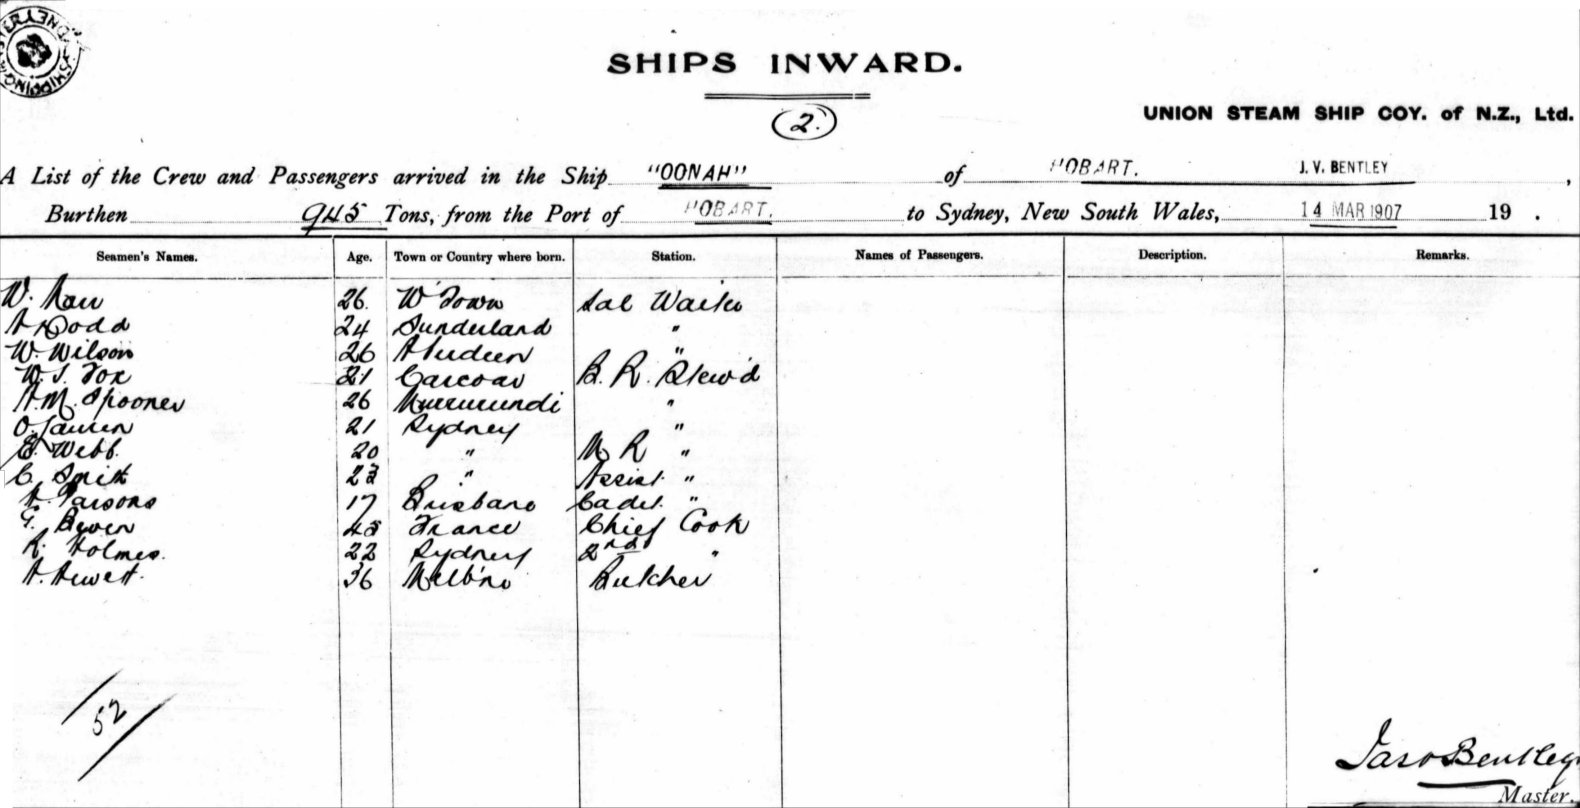 SHIPS INWARD.
2.
UNION STEAM SHIP COY. of N.Z., Ltd.
A List of the Crew and Passengers arrived in the Ship "OONAH" of HOBART. J. V. BENTLEY,
Burthen 945 Tons, from the Port of HOBART. to Sydney, New South Wales, 14 MAR 1907 19 .
Seamen's Names. Age. Town or Country where born. Station. Names of Passengers. Description. Remarks.
W. 26. W'Town Sal Waiter
A Dodd 24 Sunderland "
W. Wilson 26 Aberdeen "
W. J. Fox 21 Carcoar B. R. Stew'd
A. M. Spooner 26 Murrurundi "
O. Jansen 21 Sydney "
E. Webb. 20 " M R "
C. Smith 23 " Assist. "
A. Parsons 17 Brisbane Cadet. "
G. Bewen 45 France Chief Cook
R. Holmes. 22 Sydney 2nd "
A. 36 Melb'ne Butcher
52
Jas Bentley
Master.